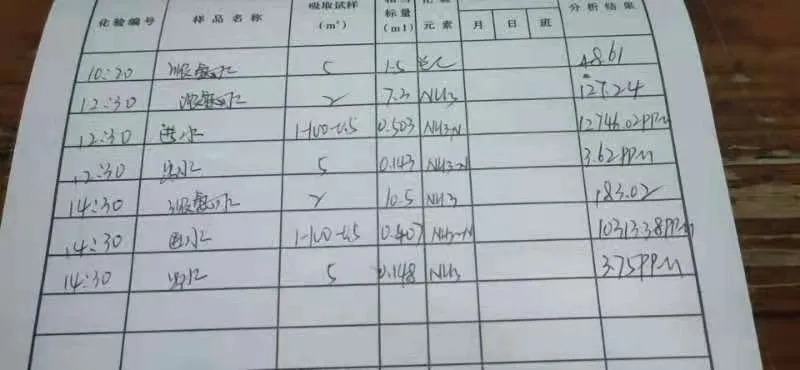 化验编号 样品名称 吸取试样(m³) 标量(ml) 元素 月 日 班 分析结果
10:20 浓氨水 5 1.5 48.61
12:30 浓氨水 2 7.3 NH3 127.24
12:30 进水 1-100-0.5 0.503 NH3-N 12746.02PPM
12:30 出水 5 0.143 NH3-N 3.62PPM
14:30 浓氨水 2 10.5 NH3 183.02
14:30 进水 1-100-0.5 0.407 NH3-N 10313.38PPM
14:30 出水 5 0.148 NH3 3.75PPM